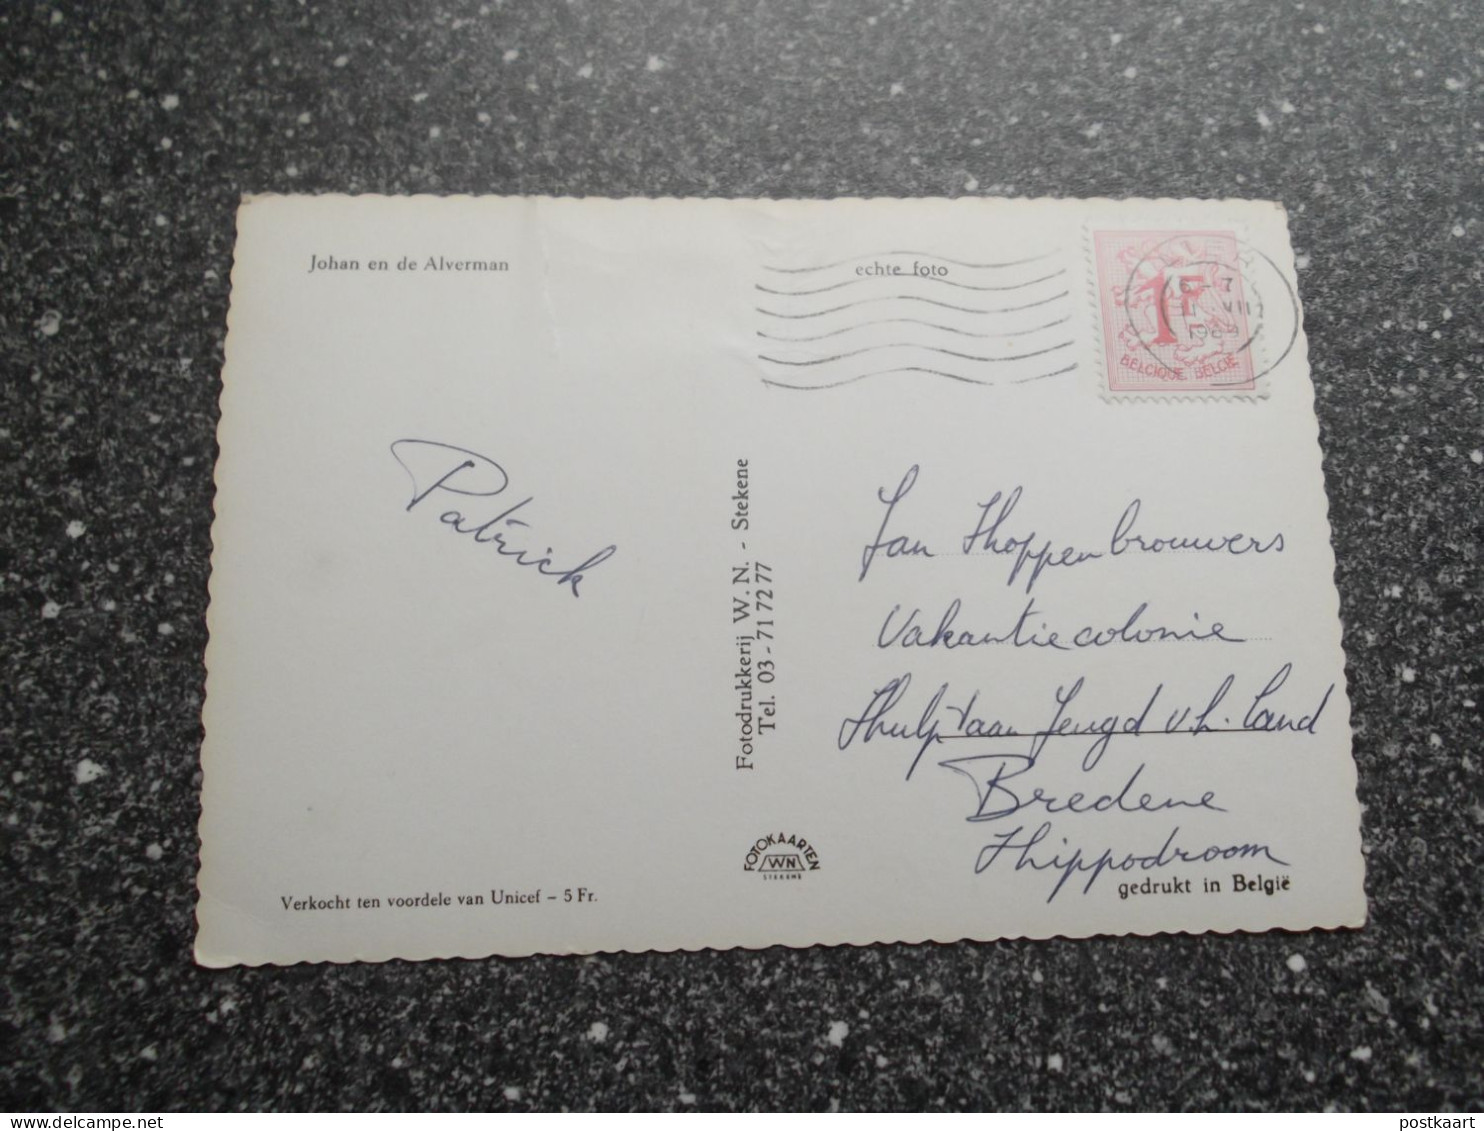 Johan en de Alverman
echte foto
1F
BELGIQUE BELGIË
6 - 7
Patrick
Fotodrukkerij W. N. - Stekene
Tel. 03 - 71 72 77
Jan Hoppenbrouwers
Vakantiecolonie
Hulp aan Jeugd v.h. Land
Bredene
Hippodroom
FOTOKAARTEN
WN
STEKENE
Verkocht ten voordele van Unicef – 5 Fr.
gedrukt in België
postkaart